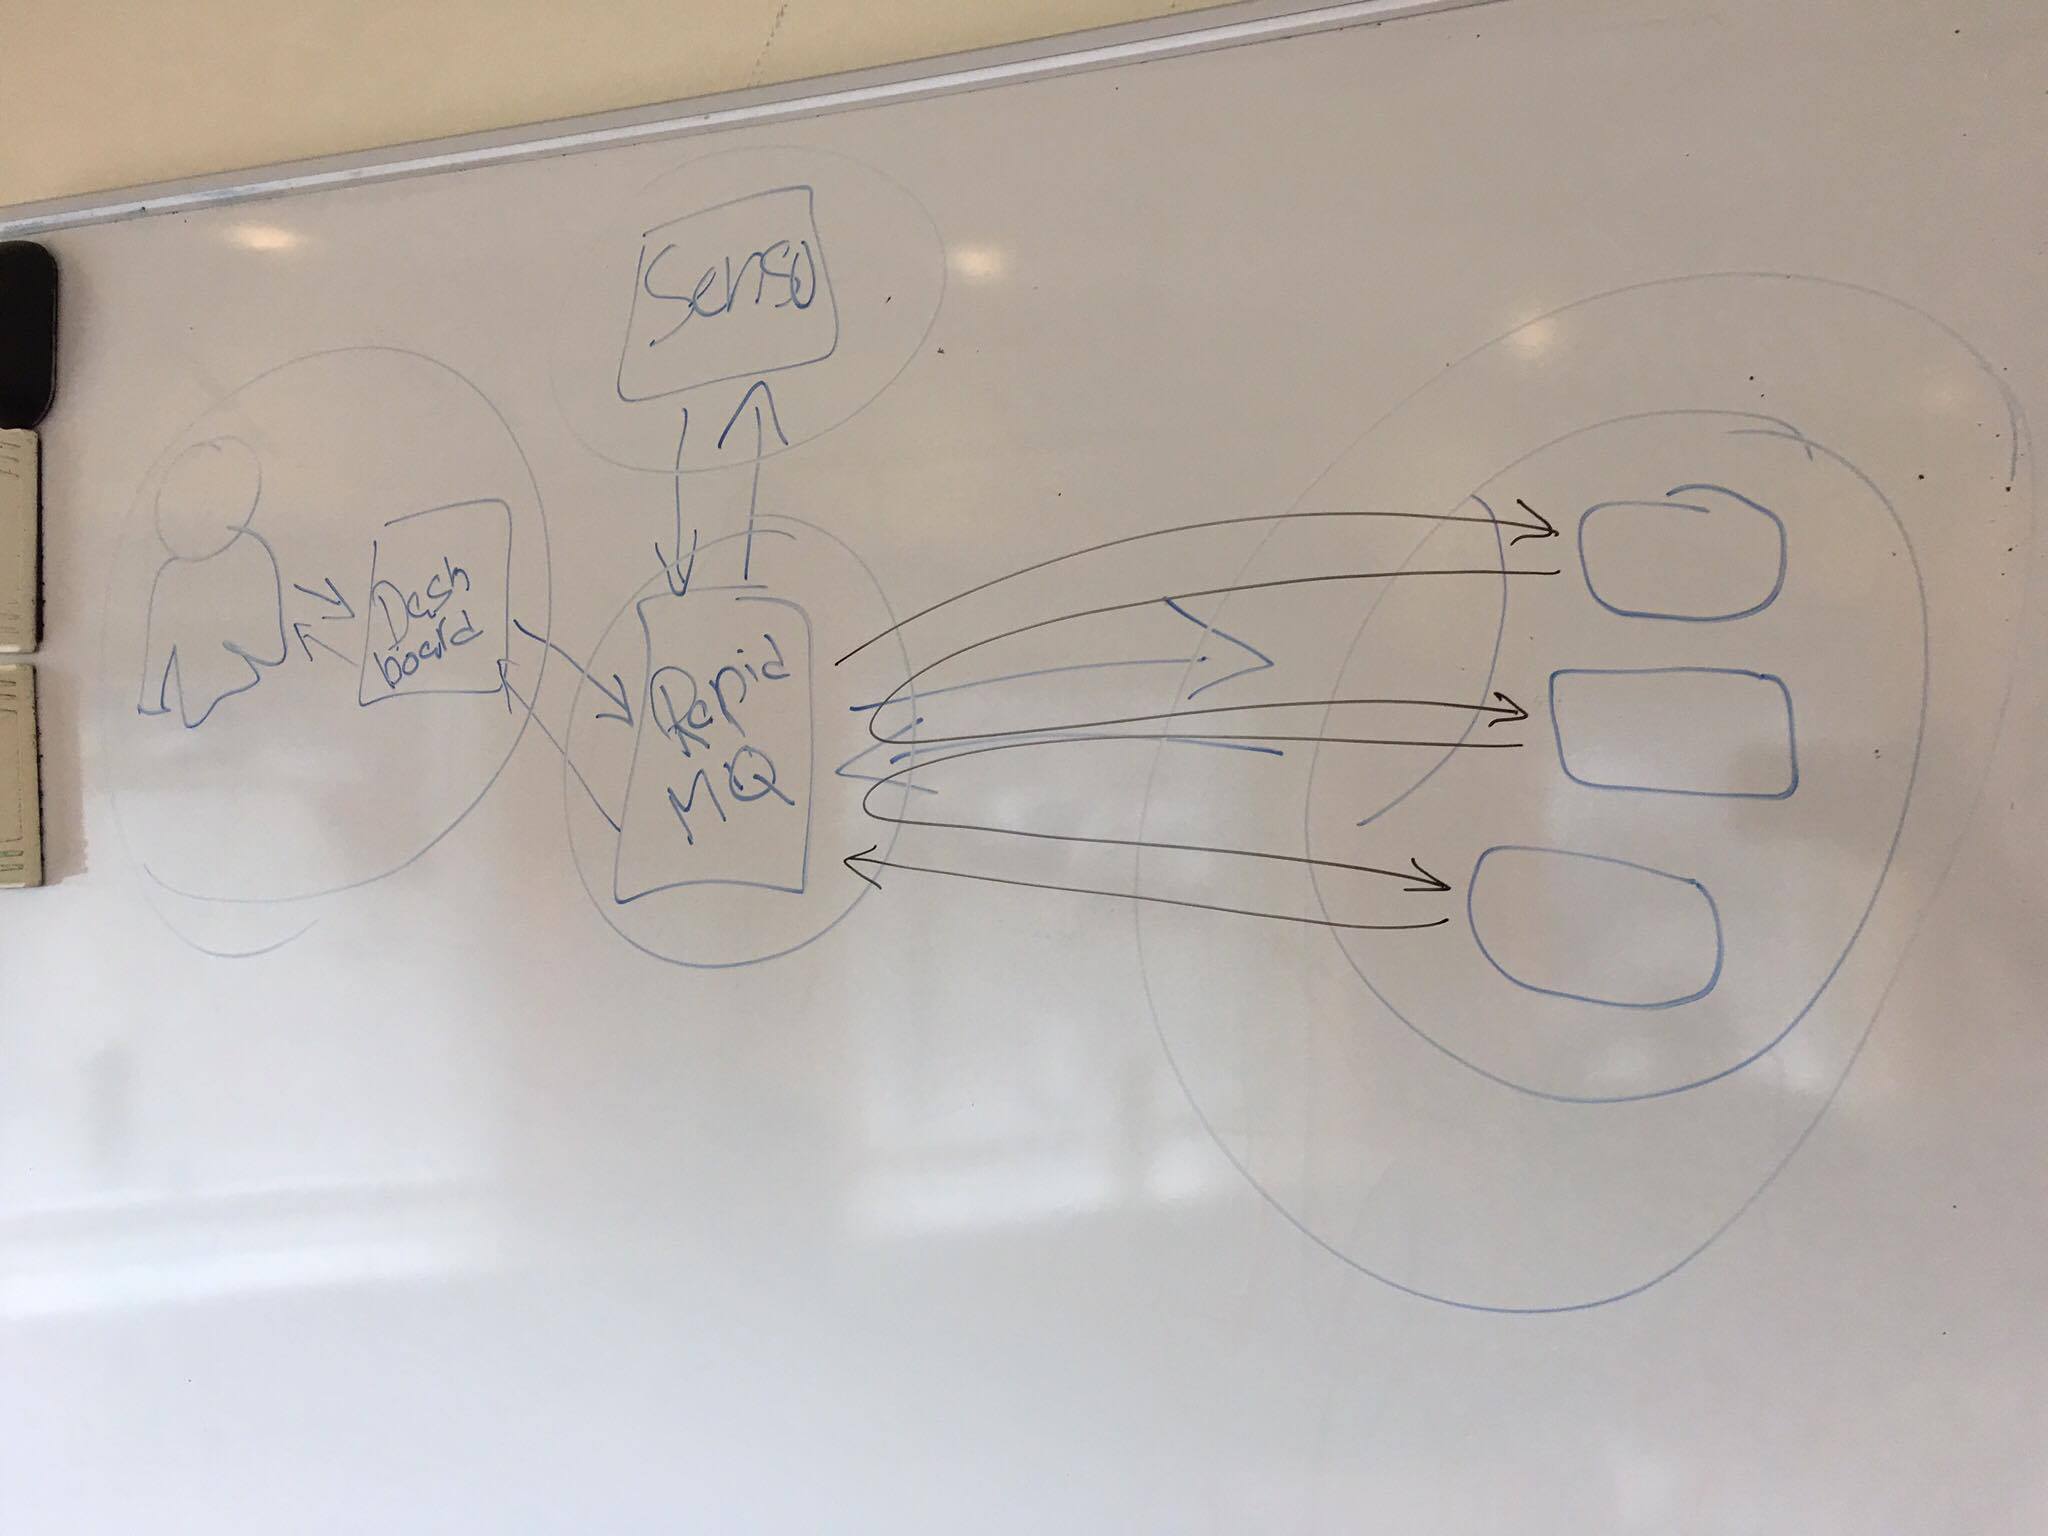 Senso
Dash
board
Rapid
MQ